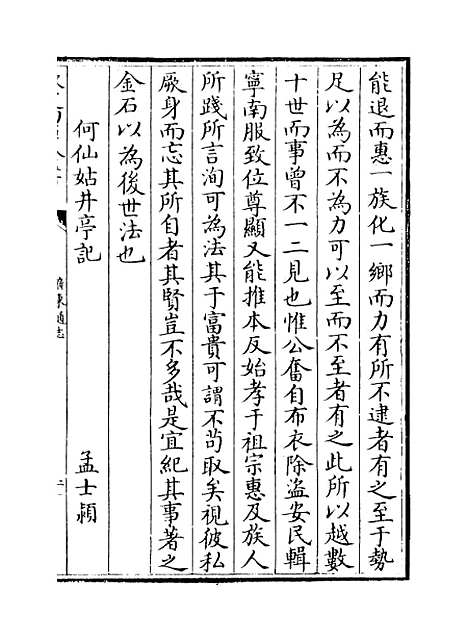 能退而惠一族化一鄉而力有所不逮者有之至于勢
足以為而不為力可以至而不至者有之此所以越數
十世而事曾不一二見也惟公奮自布衣除盜安民輯
寧南服致位尊顯又能推本反始孝于祖宗惠及族人
所踐所言洵可為法其于富貴可謂不茍取矣視彼私
厥身而忘其所自者其賢豈不多哉是宜紀其事著之
金石以為後世法也
何仙姑井亭記 孟士熲
廣東通志